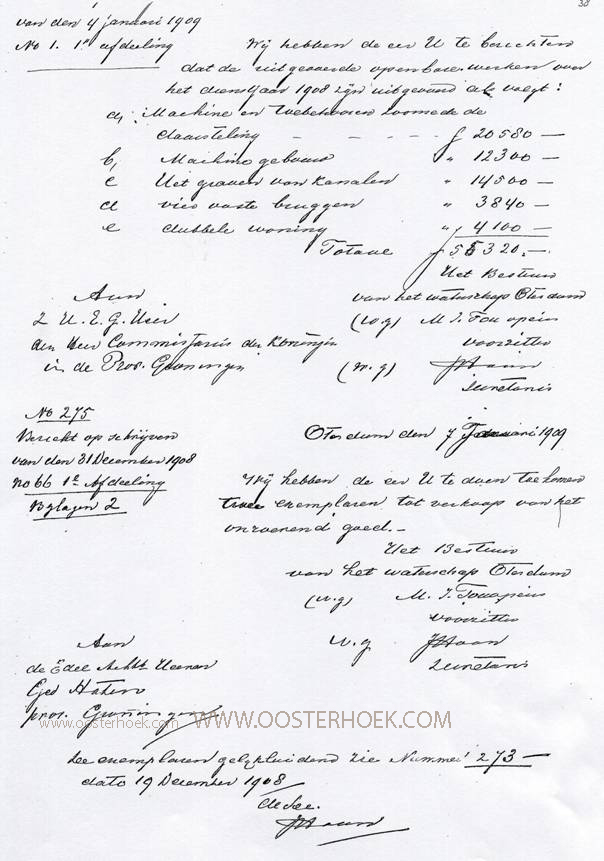 38
van den 4 januari 1909
No 1. 1e afdeeling
Wij hebben de eer U te berichten
dat de uitgevoerde openbare werken over
het dienstjaar 1908 zijn uitgevoerd als volgt:
a, Machine en toebehooren
daarstelling - - - - f 20580 —
b, Machine gebouw " 12300 —
c Uit graven van kanalen " 14500 —
d vier vaste bruggen " 3840 —
e dubbele woning " 4100 —
Totaal f 55320.—
Het Bestuur
van het waterschap Oterdum
(w.g)
voorzitter
(w.g) JHaan
secretaris
Aan
Z. H. E. G. Heer
den Heer Commissaris der Koningin
in de Prov. Groningen
No 275
Bericht op schrijven
van den 31 December 1908
no 66 1e Afdeeling
Bijlagen 2
Oterdum den 7 Januari 1909
Wij hebben de eer U te doen toekomen
twee exemplaren tot verkoop van het
onroerend goed.—
Het Bestuur
van het waterschap Oterdum
(w.g)
voorzitter
w.g JHaan
Secretaris
Aan
de Edel Achtb Heeren
Ged Staten
prov. Groningen
www.oosterhoek.com WWW.OOSTERHOEK.COM
exemplaren gelijkluidend zie Nummer 273 —
dato 19 December 1908
de Sec.
JHaan